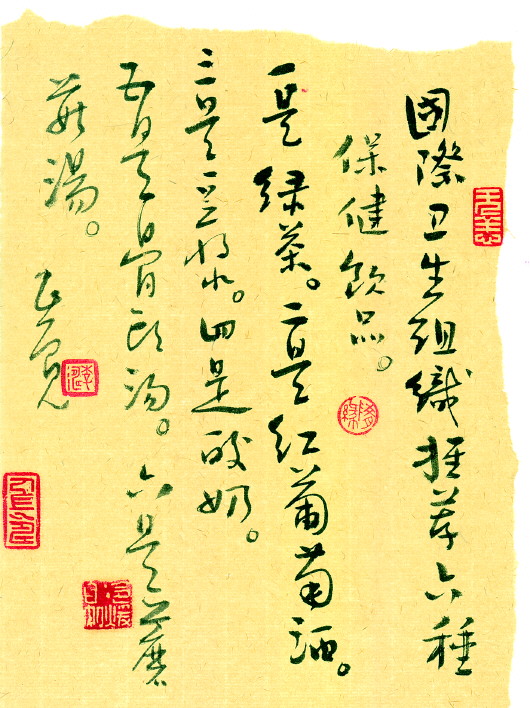 國際卫生组織推荐六種
保健飲品。
一是绿茶。二是红葡萄酒。
三是豆浆。四是酸奶。
五是骨头汤。六是蘑
菇湯。